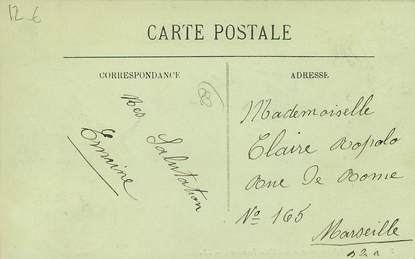 12 €
CARTE POSTALE
CORRESPONDANCE
ADRESSE
Mes Salutation
Ermoine
Mademoiselle
Claire Ropolo
Rue De Rome
No 165
Marseille